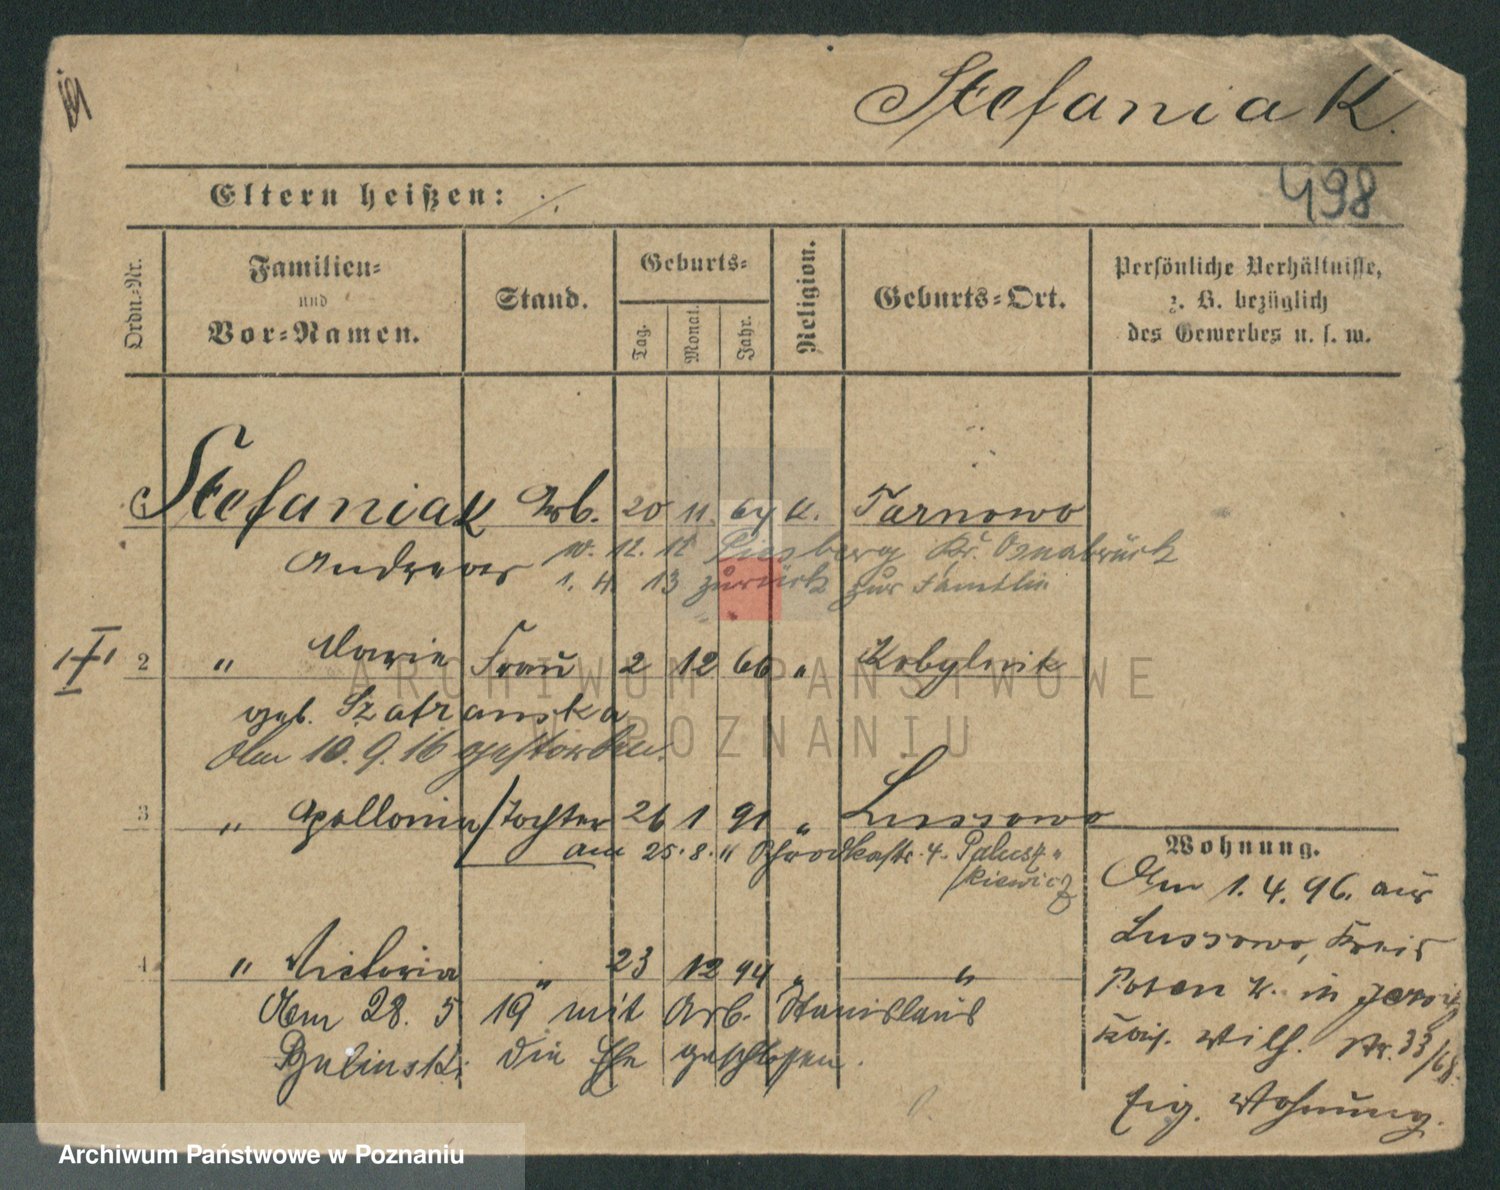 Stefaniak.
498
Eltern heißen: ·/.
Ordn.-Nr.
Familien-
und
Vor-Namen.
Stand.
Geburts-
Tag.
Monat.
Jahr.
Religion.
Geburts-Ort.
Persönliche Verhältnisse,
z. B. bezüglich
des Gewerbes u. s. w.
1 Stefaniak Arb. 20 11. 64 K. Tarnowo
Andreas 12. 11 Piesberg Kr. Osnabrück
1. 4. 13 zurück zur Familie
2 " Marie Frau 2 12 66 " Kobylnik
geb. Szafranska
Am 10. 9. 16 gestorben.
3 " Apollonia Tochter 26 1 91 " Lussowo
am 25. 8. 11 Schrodkastr. 4. Palusz-
kiewicz
4 " Victoria " 23 12 94 " "
Am 28. 5 19 mit Arb. Stanislaus
die Ehe geschlossen.
Wohnung.
Am 1. 4. 96. aus
Lussowo, Kreis
Posen W. in Jersitz
Kais. Wilh. Str. 33/68.
Eig. Wohnung.
ARCHIWUM PAŃSTWOWE
W POZNANIU
Archiwum Państwowe w Poznaniu